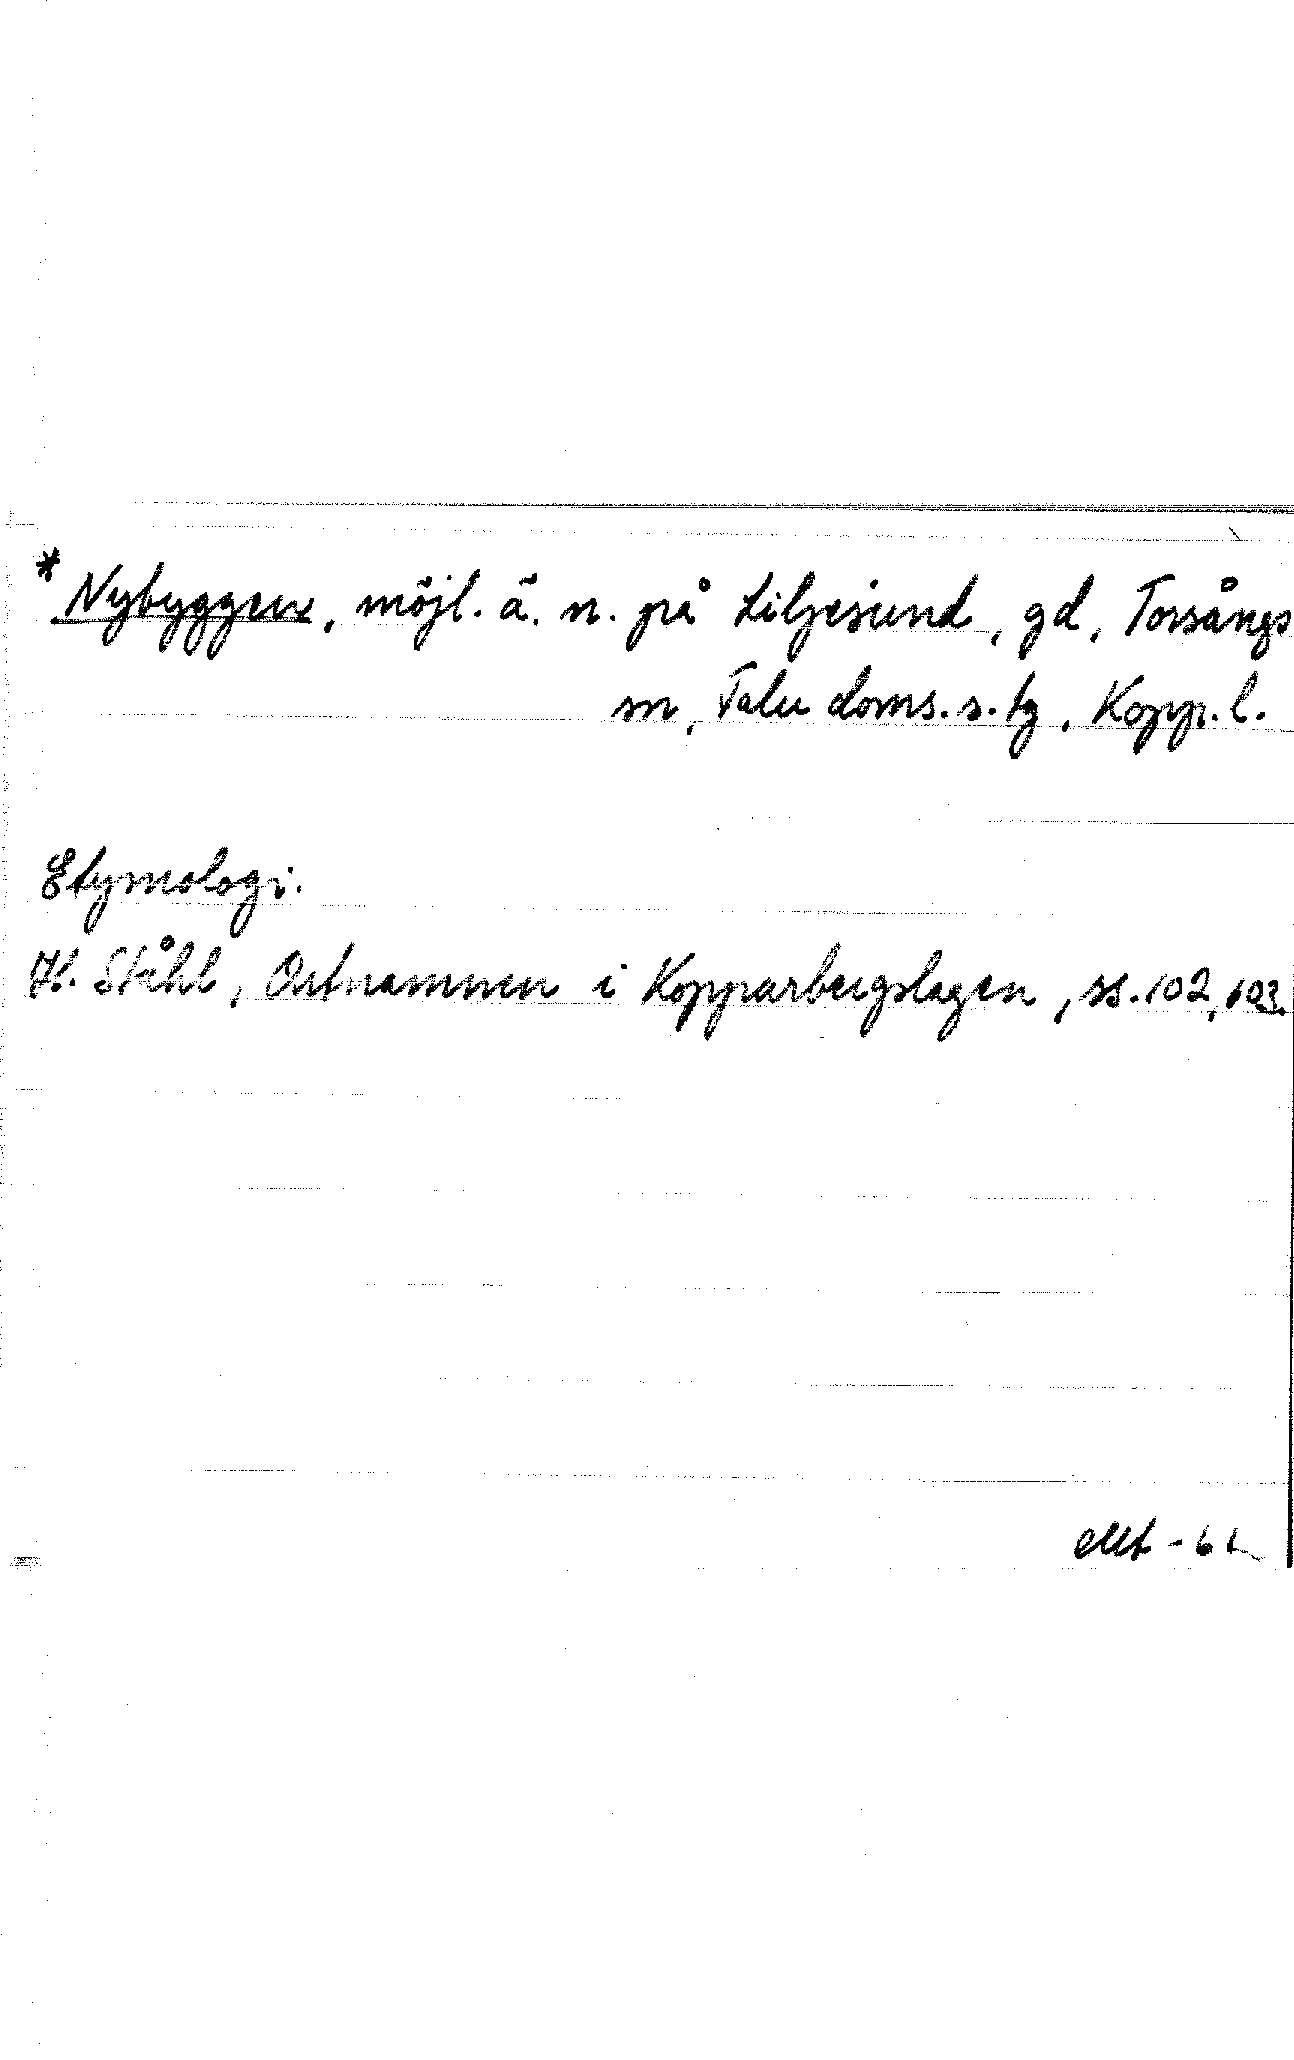 * Nybyggen, möjl. ä. n. på Liljesund, gd, Torsångs
sn, Falu doms. s. tg, Kopp. l.
Etymologi.
H. Ståhl, Ortnamnen i Kopparbergslagen, ss. 102, 103.